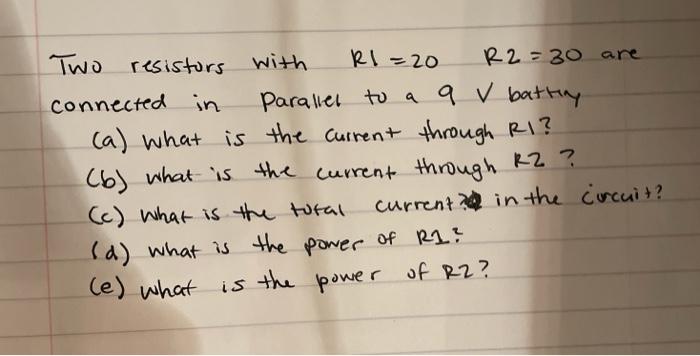 Two resistors with R1 = 20 R2 = 30 are
connected in parallel to a 9 V battry
(a) what is the current through R1?
(b) what is the current through R2?
(c) what is the total current? in the circuit?
(d) what is the power of R1?
(e) what is the power of R2?